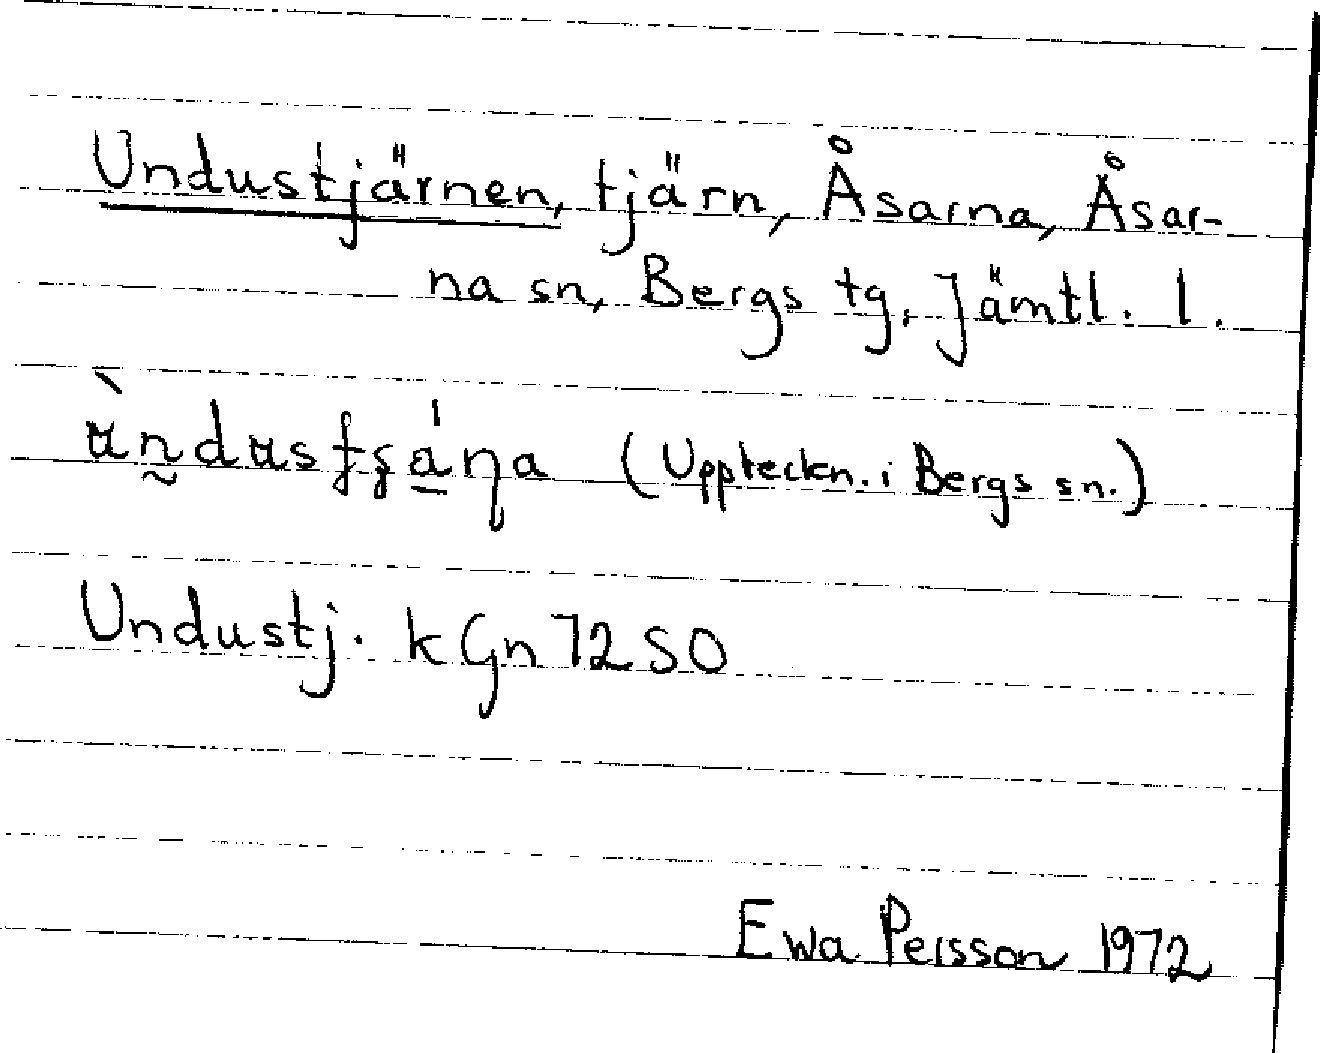 Undustjärnen, tjärn, Åsarna, Åsar-
na sn, Bergs tg, Jämtl. l.
(Uppteckn. i Bergs sn.)
Undustj. kGn72SO
Ewa Persson 1972